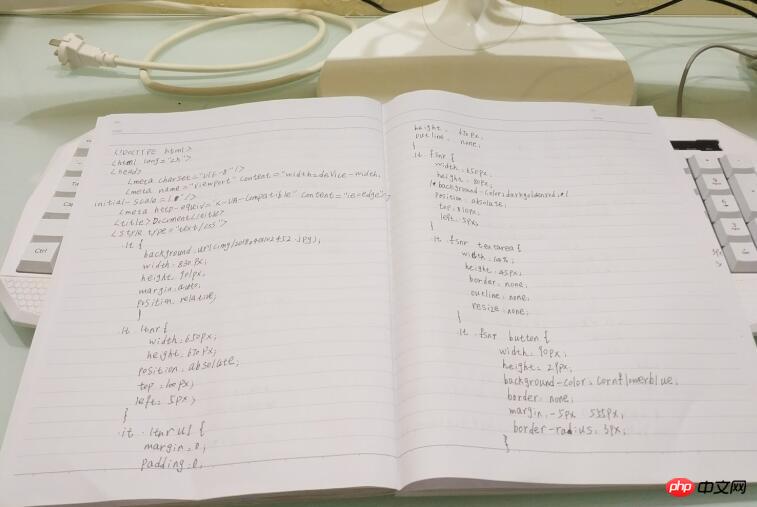 <!DOCTYPE html>
<html lang="zh">
<head>
<meta charset="UTF-8"/>
<meta name="viewport" content="width=device-width,
initial-scale=1.0"/>
<meta http-equiv="X-UA-Compatible" content="ie=edge"/>
<title>Document</title>
<style type="text/css">
.lt {
background: url(img/
width: 830px;
height: 901px;
margin: auto;
position: relative;
}
.lt .ltnr {
width: 650px;
height: 670px;
position: absolute;
top: 100px;
left: 5px;
}
.lt .ltnr ul {
margin: 0;
padding: 0;
height: 670px;
outline: none;
}
.lt .fsnr {
width: 650px;
height: 80px;
/* background-color: darkgoldenrod; */
position: absolute;
top:
left: 5px;
}
.lt .fsnr textarea {
width:
height: 45px;
border: none;
outline: none;
resize: none;
}
.lt .fsnr button {
width: 90px;
height: 29px;
background-color: cornflowerblue;
border: none;
margin: -5px 555px;
border-radius: 3px;
}
Ctrl
php 中文网